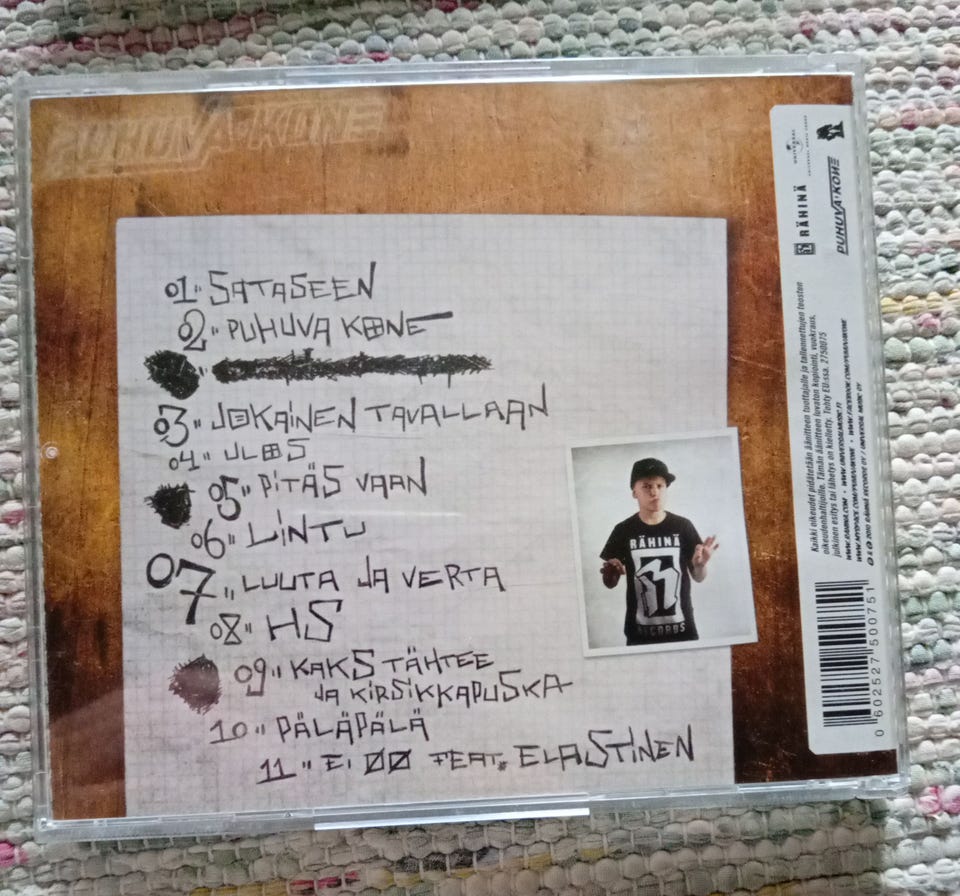 PUHUVA KONE
01" SATASEEN
02" PUHUVA KONE
03" JOKAINEN TAVALLAAN
04" ULOS
05" PITÄS VAAN
06" LINTU
07" LUUTA JA VERTA
08" HS
09" KAKS TÄHTEE
JA KIRSIKKAPUSKA
10" PÄLÄPÄLÄ
11" EI ØØ FEAT. ELASTINEN
RÄHINÄ
RECORDS
UNIVERSAL
RÄHINÄ
PUHUVA KONE
Kaikki oikeudet pidätetään äänitteen tuottajalle ja tallennettujen teosten
oikeudenhaltijoille. Tämän äänitteen luvaton kopiointi, vuokraus,
julkinen esitys tai lähetys on kielletty. Tehty EU:ssa. 2750075
WWW.RAHINA.COM • WWW.UNIVERSALMUSIC.FI
WWW.MYSPACE.COM/PUHUVAKONE • WWW.FACEBOOK.COM/PUHUVAKONE
℗ & © 2010 RÄHINÄ RECORDS OY / UNIVERSAL MUSIC OY
0 602527 500751